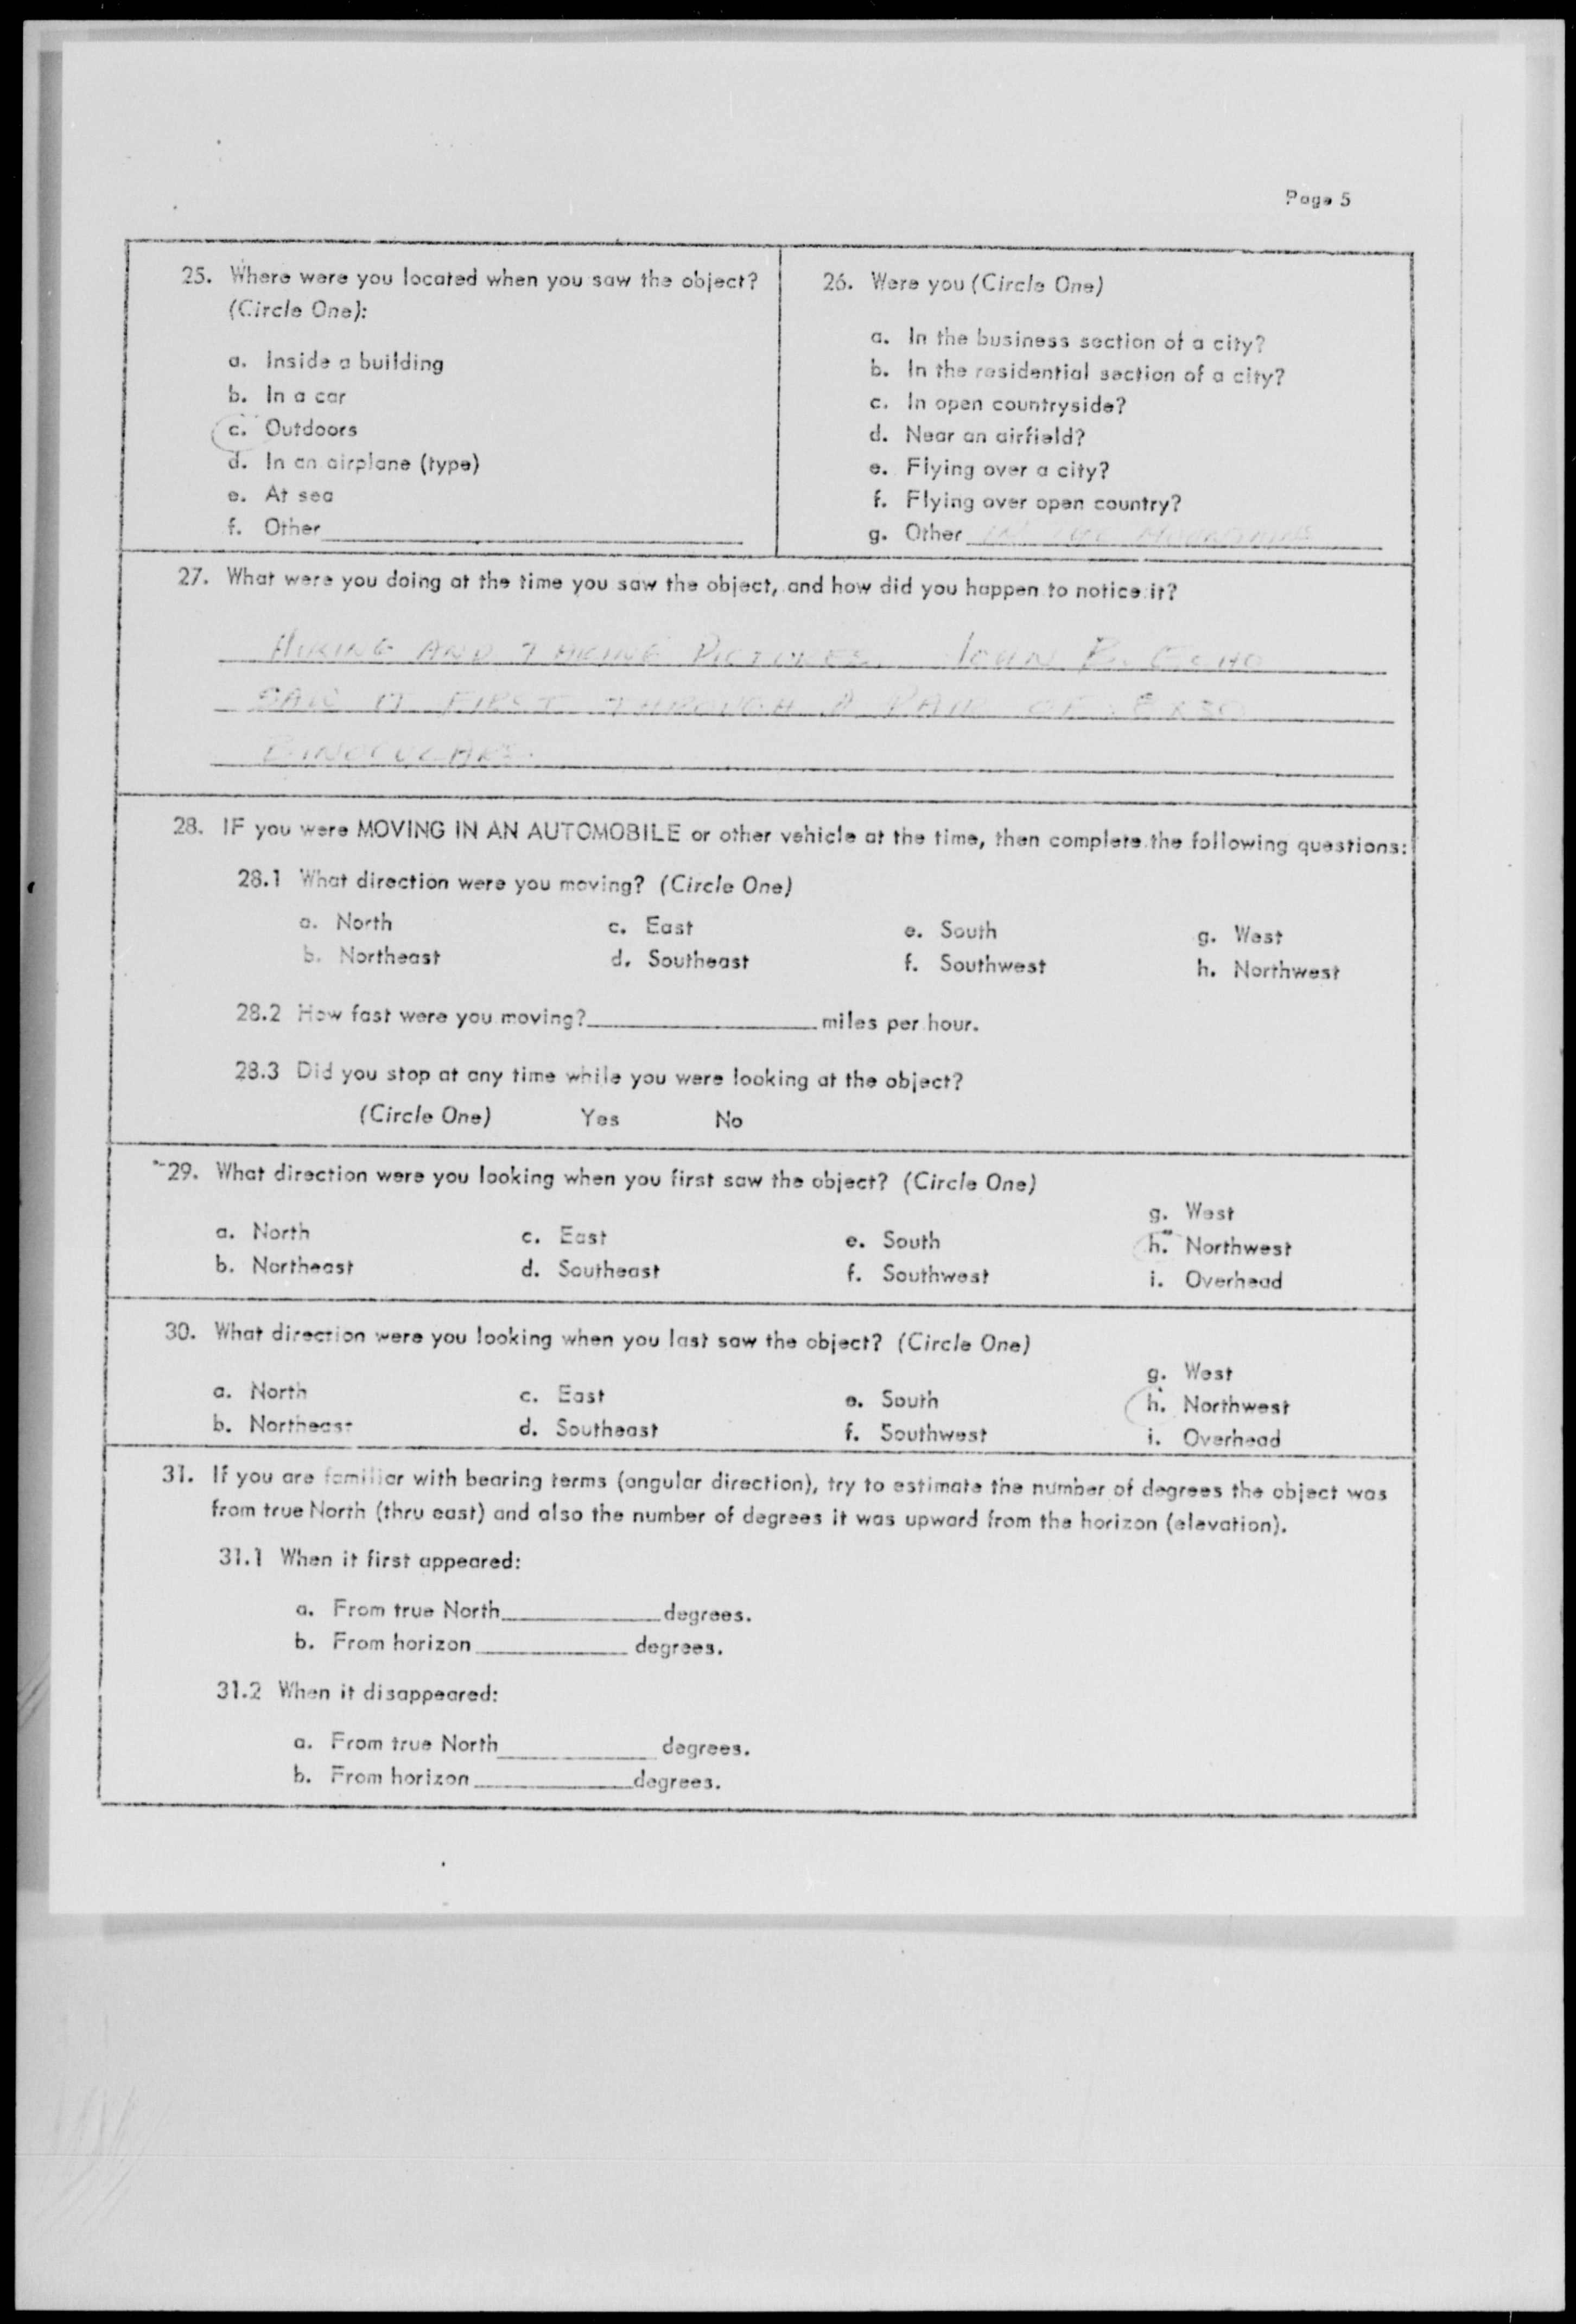 Page 5
25. Where were you located when you saw the object?
(Circle One):
a. Inside a building
b. In a car
c. Outdoors
d. In an airplane (type)
e. At sea
f. Other
26. Were you (Circle One)
a. In the business section of a city?
b. In the residential section of a city?
c. In open countryside?
d. Near an airfield?
e. Flying over a city?
f. Flying over open country?
g. Other IN THE MOUNTAINS
27. What were you doing at the time you saw the object, and how did you happen to notice it?
HIKING AND TAKING PICTURES. JOHN B.
SAW IT FIRST THROUGH A PAIR OF 8X30
BINOCULARS.
28. IF you were MOVING IN AN AUTOMOBILE or other vehicle at the time, then complete the following questions:
28.1 What direction were you moving? (Circle One)
a. North c. East e. South g. West
b. Northeast d. Southeast f. Southwest h. Northwest
28.2 How fast were you moving? miles per hour.
28.3 Did you stop at any time while you were looking at the object?
(Circle One) Yes No
29. What direction were you looking when you first saw the object? (Circle One)
g. West
a. North c. East e. South h. Northwest
b. Northeast d. Southeast f. Southwest i. Overhead
30. What direction were you looking when you last saw the object? (Circle One)
g. West
a. North c. East e. South h. Northwest
b. Northeast d. Southeast f. Southwest i. Overhead
31. If you are familiar with bearing terms (angular direction), try to estimate the number of degrees the object was
from true North (thru east) and also the number of degrees it was upward from the horizon (elevation).
31.1 When it first appeared:
a. From true North degrees.
b. From horizon degrees.
31.2 When it disappeared:
a. From true North degrees.
b. From horizon degrees.